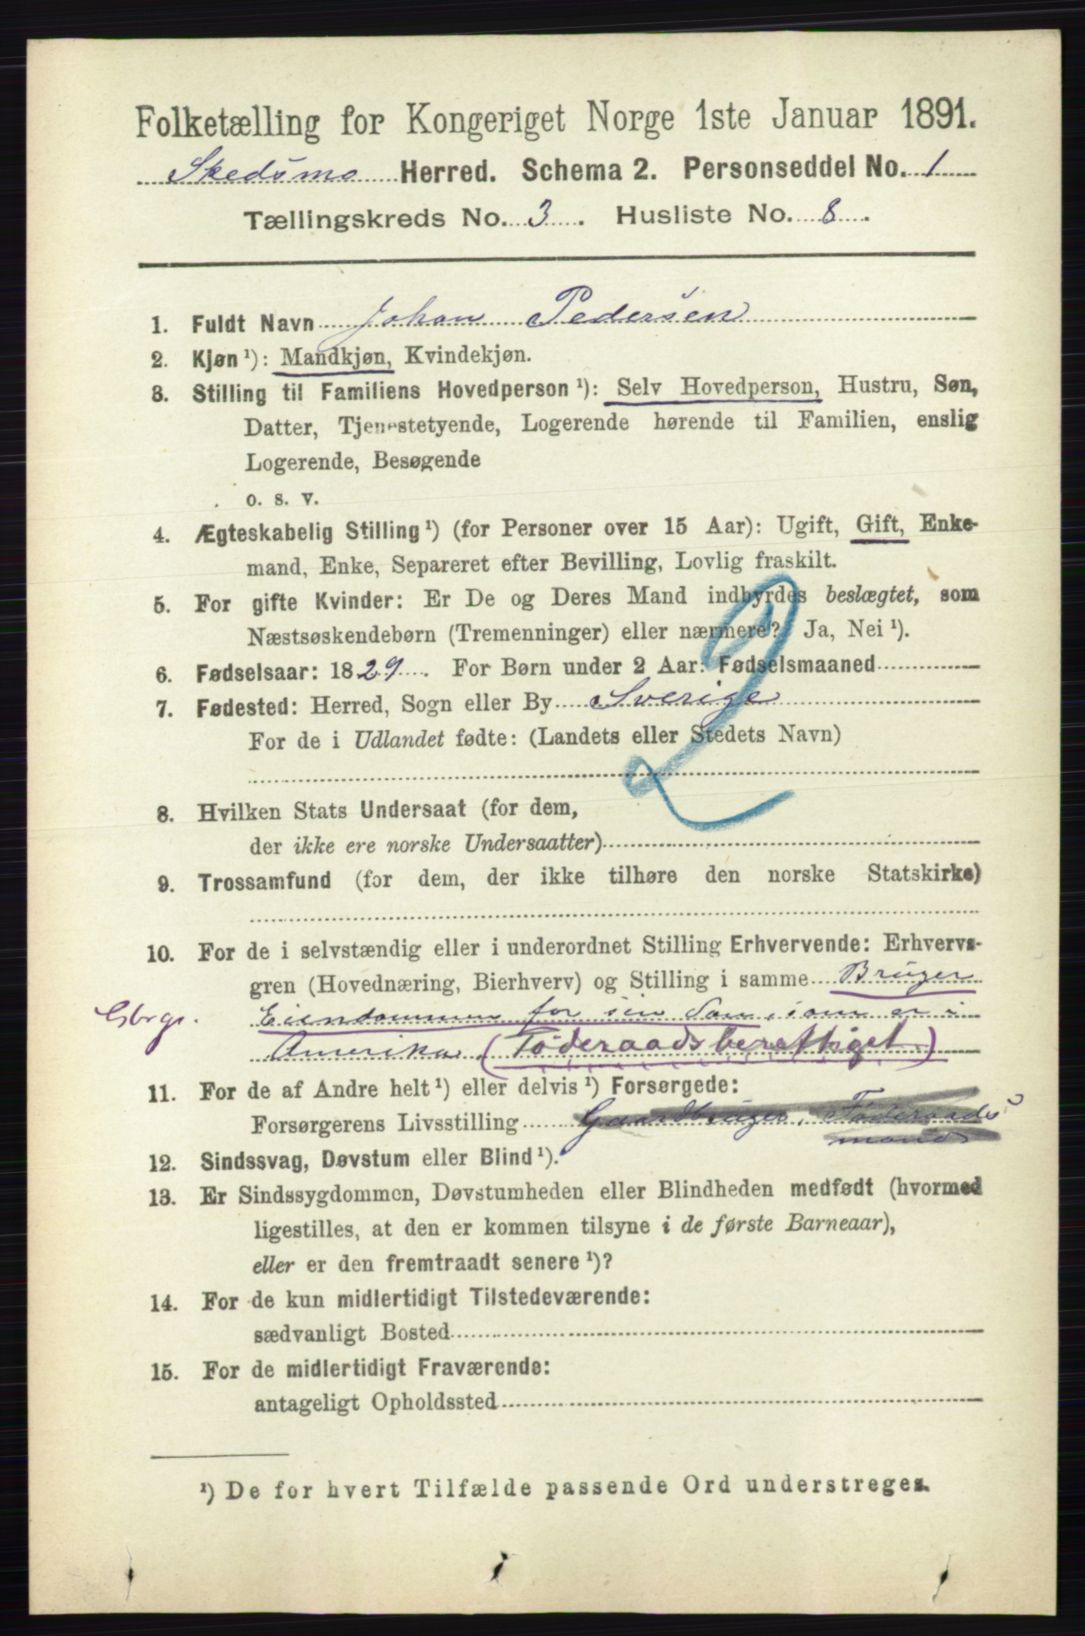 Folketælling for Kongeriget Norge 1ste Januar 1891.
Skedsmo Herred. Schema 2. Personseddel No. 1
Tællingskreds No. 3. Husliste No. 8.
1. Fuldt Navn Johan Pedersen
2. Kjøn ¹): Mandkjøn, Kvindekjøn.
3. Stilling til Familiens Hovedperson ¹): Selv Hovedperson, Hustru, Søn,
Datter, Tjenestetyende, Logerende hørende til Familien, enslig
Logerende, Besøgende
o. s. v.
4. Ægteskabelig Stilling ¹) (for Personer over 15 Aar): Ugift, Gift, Enke-
mand, Enke, Separeret efter Bevilling, Lovlig fraskilt.
5. For gifte Kvinder: Er De og Deres Mand indbyrdes beslægtet, som
Næstsøskendebørn (Tremenninger) eller nærmere? Ja, Nei ¹).
2
6. Fødselsaar: 1829. For Børn under 2 Aar: Fødselsmaaned
7. Fødested: Herred, Sogn eller By Sverige
For de i Udlandet fødte: (Landets eller Stedets Navn)
8. Hvilken Stats Undersaat (for dem,
der ikke ere norske Undersaatter)
9. Trossamfund (for dem, der ikke tilhøre den norske Statskirke)
10. For de i selvstændig eller i underordnet Stilling Erhvervende: Erhvervs-
gren (Hovednæring, Bierhverv) og Stilling i samme Bruger
Gbrgr. Eiendommen for sin Søn, som er i
Amerika (Føderaadsberettiget)
11. For de af Andre helt ¹) eller delvis ¹) Forsørgede:
Forsørgerens Livsstilling Gaardbruger, Føderaads
mand
12. Sindssvag, Døvstum eller Blind ¹).
13. Er Sindssygdommen, Døvstumheden eller Blindheden medfødt (hvormed
ligestilles, at den er kommen tilsyne i de første Barneaar),
eller er den fremtraadt senere ¹)?
14. For de kun midlertidigt Tilstedeværende:
sædvanligt Bosted
15. For de midlertidigt Fraværende:
antageligt Opholdssted
¹) De for hvert Tilfælde passende Ord understreges.